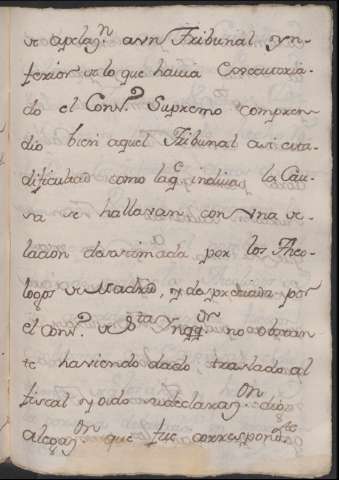 de apelaz.n a vn Tribunal yn-
ferior de lo que havia executoria-
do el Cons.o Supremo compren-
dio bien aquel Tribunal asi esta
dificultad como la q.e induias la Cau-
sa de hallaran con vna de-
lacion desestimada por los Theo-
logos de Madrid, y despreciada por
el Cons.o de S.ta Ynqq.on no obstan-
te haviendo dado traslado al
fiscal y oido su declaraz.on dio
alegaz.on que fue correspond.te